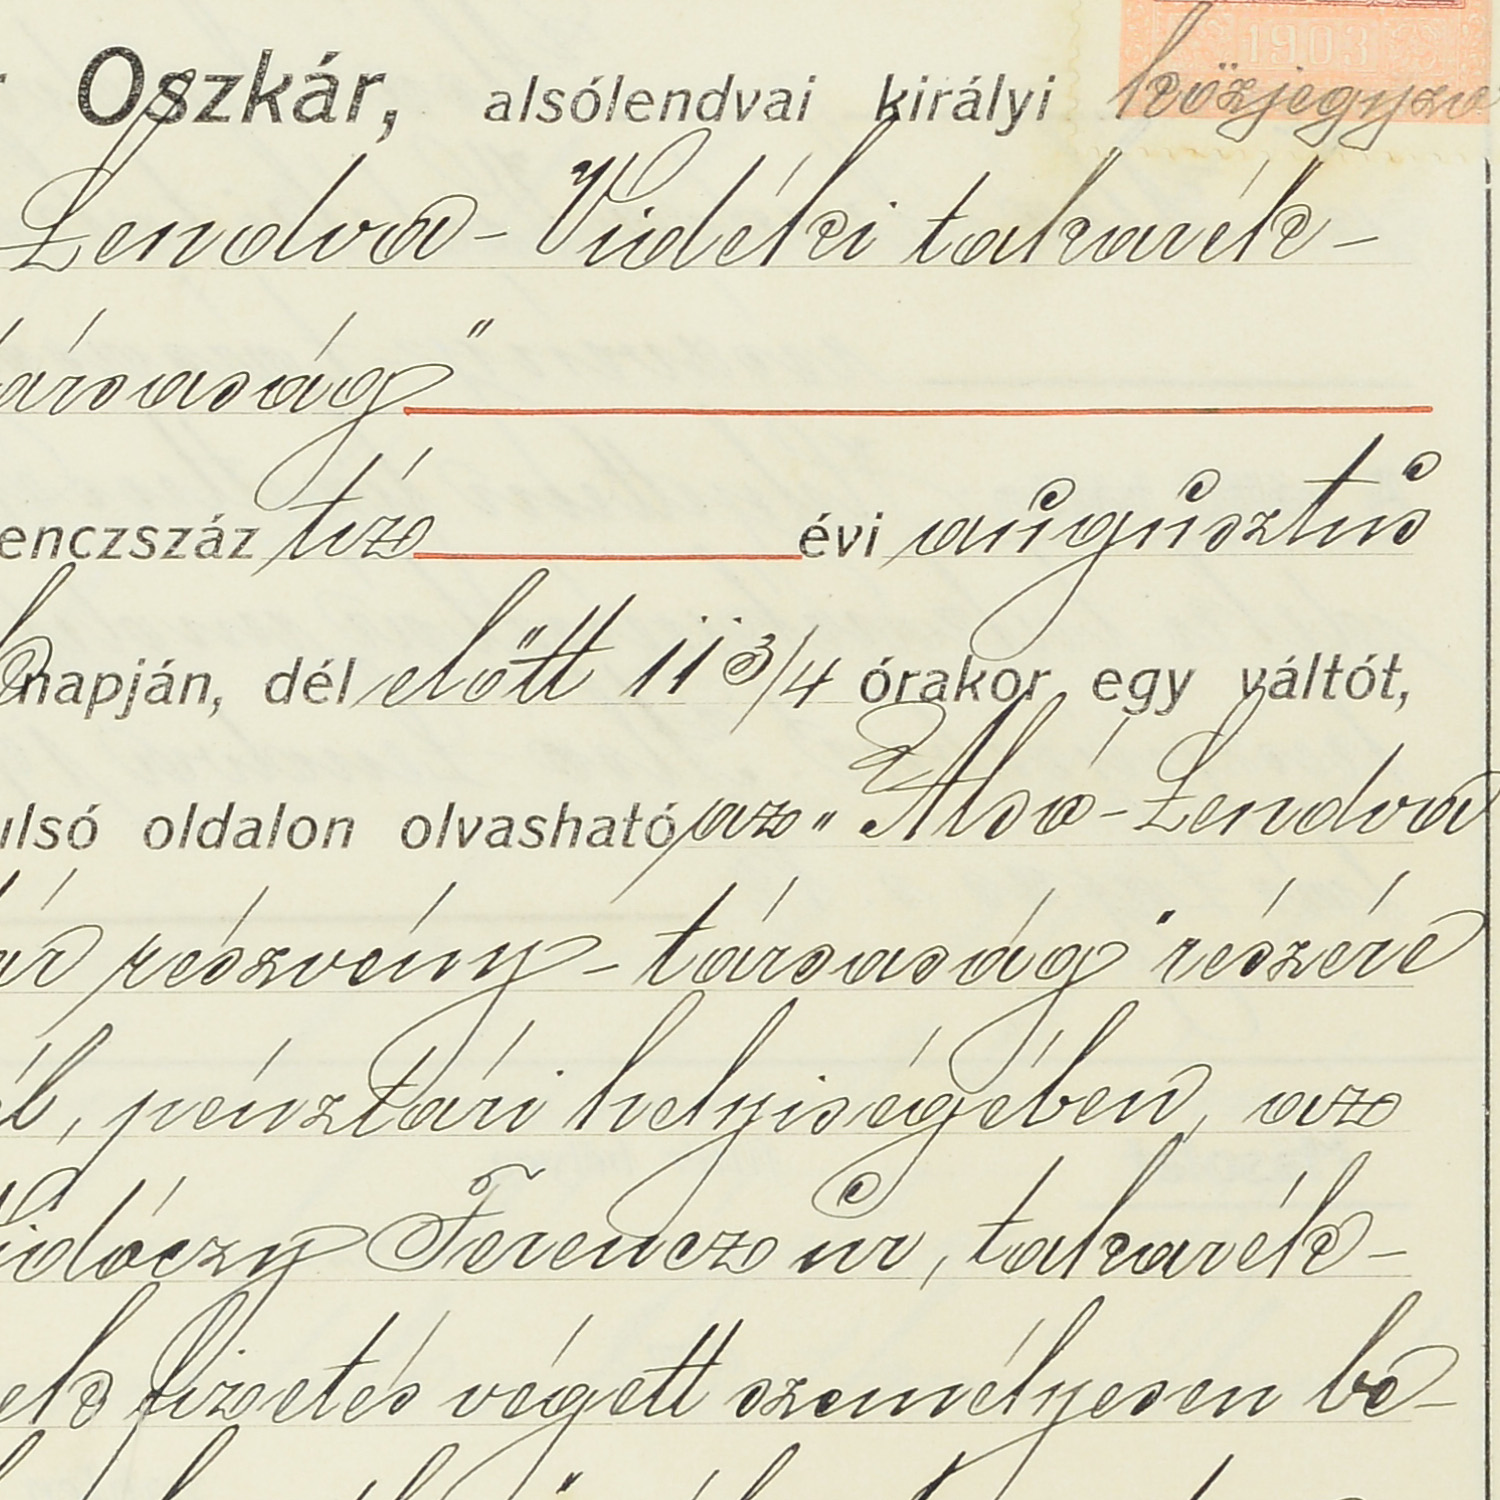 1903
Oszkár, alsólendvai királyi közjegyző
Lendva-Vidéki takarék-
társaság"
enczszáz tiz évi augusztus
napján, dél előtt 11 3/4 órakor egy váltót,
ulsó oldalon olvasható az „Alsó-Lendva
ár részvény-társaság" részére
él, pénztári helyiségében, az
Ferencz úr, takarék-
fizetés végett személyesen be-